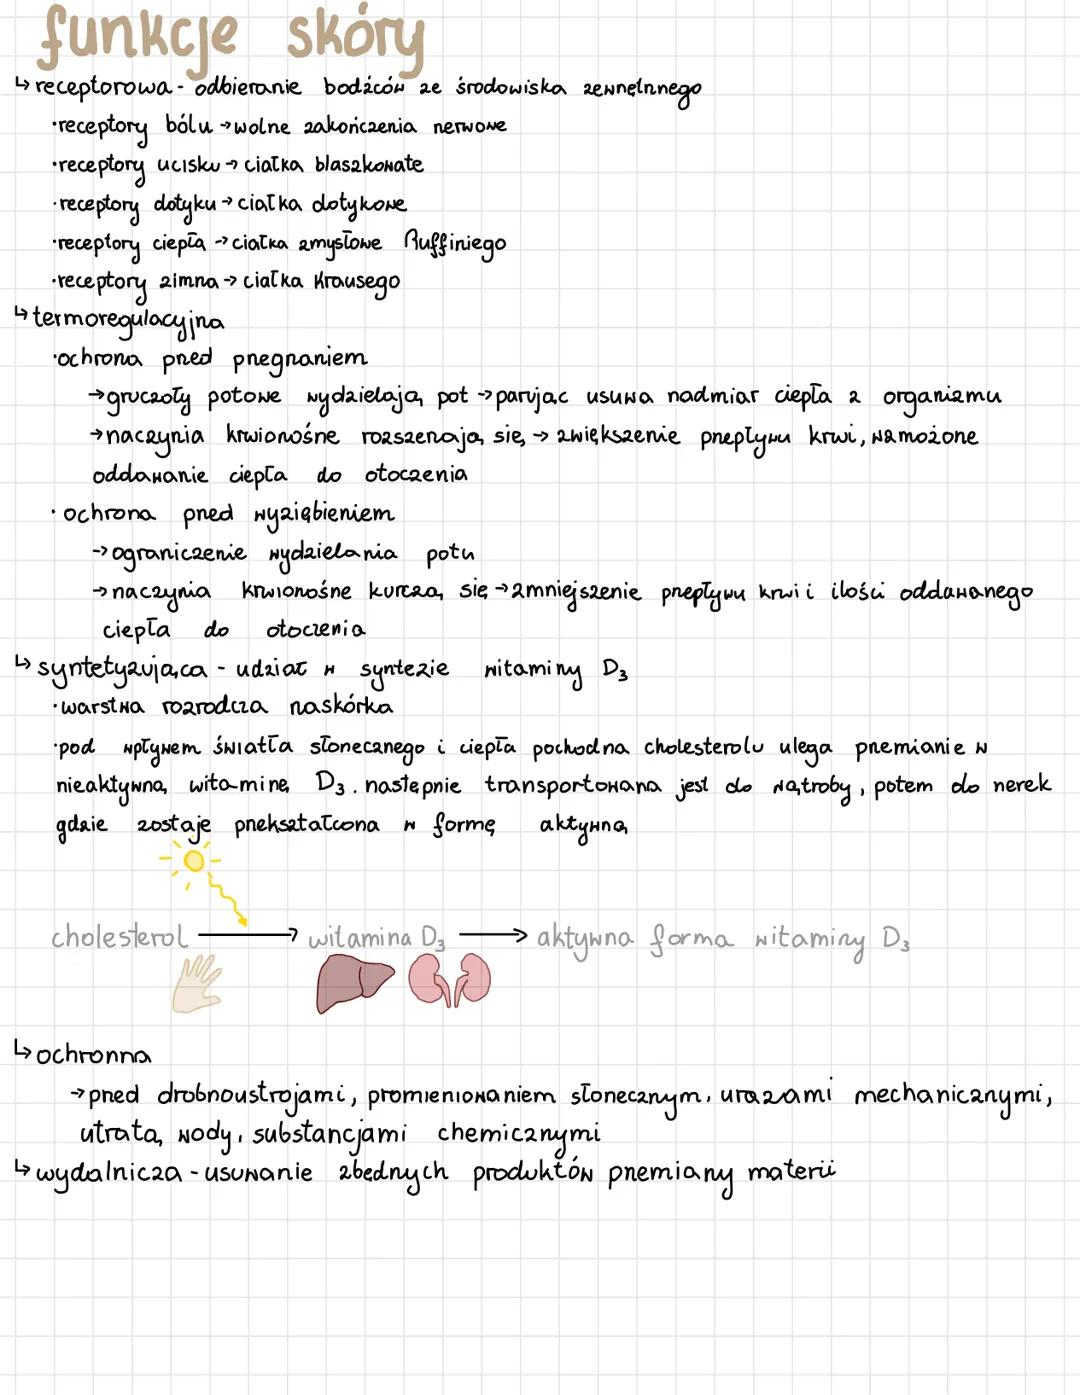 funkcje skóry
↳ receptorowa - odbieranie bodźców ze środowiska zewnętrznego
·receptory bólu → wolne zakończenia nerwowe
·receptory ucisku → ciałka blaszkowate
·receptory dotyku → ciałka dotykowe
·receptory ciepła → ciałka zmysłowe Ruffiniego
·receptory zimna → ciałka Krausego
↳ termoregulacyjna
·ochrona przed przegrzaniem
→ gruczoły potowe wydzielają pot → parując usuwa nadmiar ciepła z organizmu
→ naczynia krwionośne rozszerzają się → zwiększenie przepływu krwi, wzmożone
oddawanie ciepła do otoczenia
· ochrona przed wyziębieniem
→ ograniczenie wydzielania potu
→ naczynia krwionośne kurczą się → zmniejszenie przepływu krwi i ilości oddawanego
ciepła do otoczenia
↳ syntetyzująca - udział w syntezie witaminy D₃
·warstwa rozrodcza naskórka
·pod wpływem światła słonecznego i ciepła pochodna cholesterolu ulega przemianie w
nieaktywną witaminę D₃. następnie transportowana jest do wątroby, potem do nerek
gdzie zostaje przekształcona w formę aktywną
cholesterol → witamina D₃ → aktywna forma witaminy D₃
↳ ochronna
→ przed drobnoustrojami, promieniowaniem słonecznym, urazami mechanicznymi,
utratą wody, substancjami chemicznymi
↳ wydalnicza - usuwanie zbędnych produktów przemiany materii